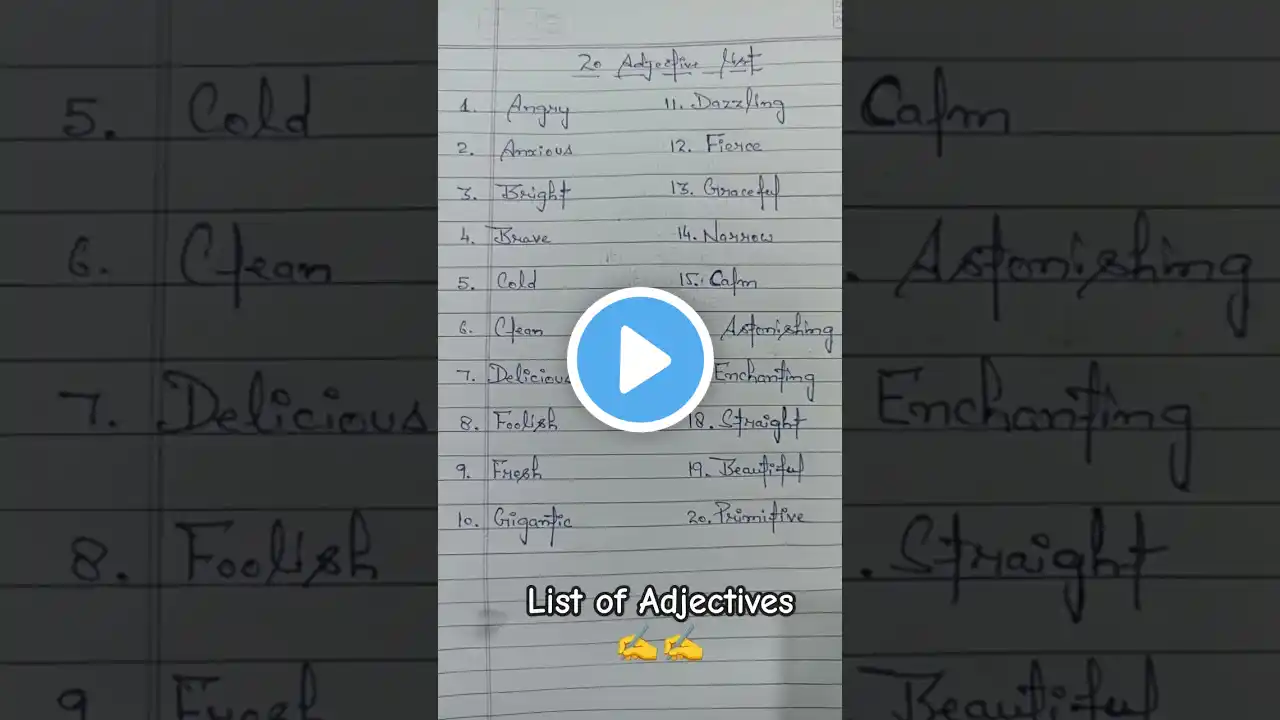 20 Adjective list
1. Angry
2. Anxious
3. Bright
4. Brave
5. Cold
6. Clean
7. Delicious
8. Foolish
9. Fresh
10. Gigantic
11. Dazzling
12. Fierce
13. Graceful
14. Narrow
15. Calm
Astonishing
Enchanting
18. Straight
19. Beautiful
20. Primitive
List of Adjectives
5. Cold
6. Clean
7. Delicious
8. Foolish
9 Fresh
Calm
Astonishing
Enchanting
. Straight
Beautiful